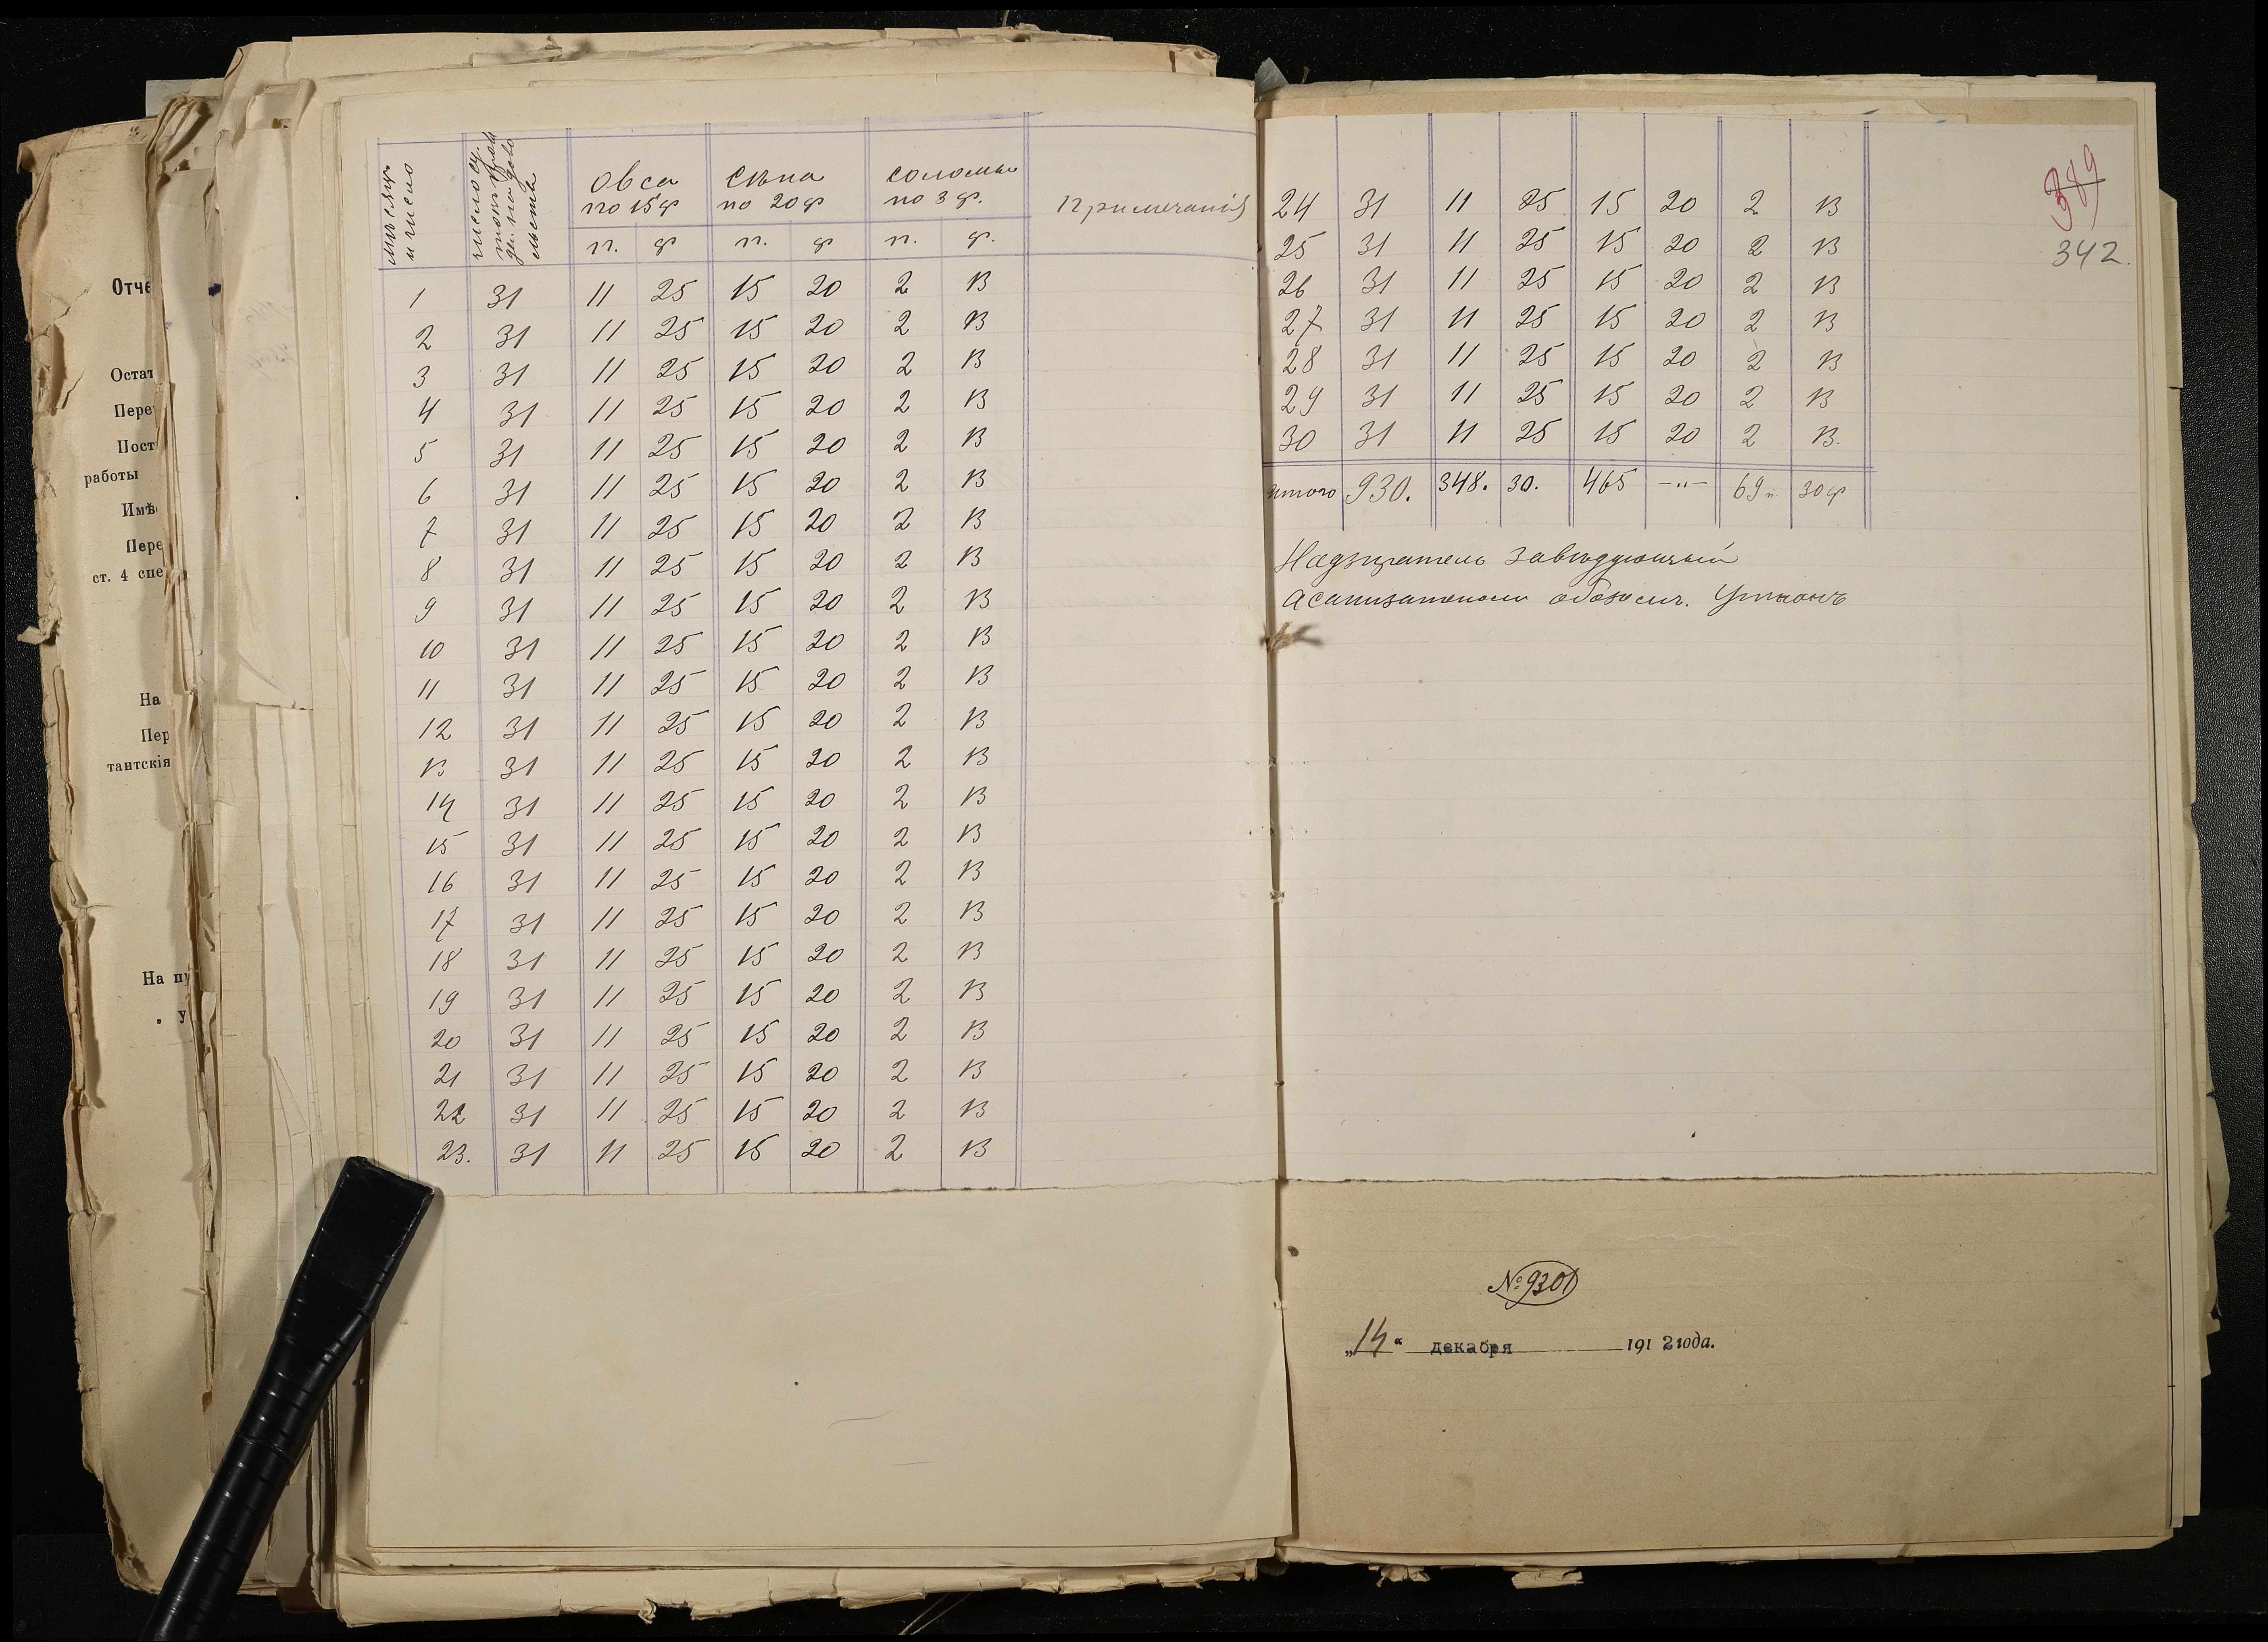 Отче
Остат
Пере
Пост
работы
Имѣ
Пере
ст. 4 спе
На
Пер
тантскія
На пу
у
мѣсяцъ
и число
число су-
точн.
овса
по 15 ф
сѣна
по 20 ф
соломы
по 3 ф.
Примечанiя
п. ф п. ф п. ф.
1 31 11 25 15 20 2 13
2 31 11 25 15 20 2 13
3 31 11 25 15 20 2 13
4 31 11 25 15 20 2 13
5 31 11 25 15 20 2 13
6 31 11 25 15 20 2 13
7 31 11 25 15 20 2 13
8 31 11 25 15 20 2 13
9 31 11 25 15 20 2 13
10 31 11 25 15 20 2 13
11 31 11 25 15 20 2 13
12 31 11 25 15 20 2 13
13 31 11 25 15 20 2 13
14 31 11 25 15 20 2 13
15 31 11 25 15 20 2 13
16 31 11 25 15 20 2 13
17 31 11 25 15 20 2 13
18 31 11 25 15 20 2 13
19 31 11 25 15 20 2 13
20 31 11 25 15 20 2 13
21 31 11 25 15 20 2 13
22 31 11 25 15 20 2 13
23. 31 11 25 15 20 2 13
389
342.
24 31 11 25 15 20 2 13
25 31 11 25 15 20 2 13
26 31 11 25 15 20 2 13
27 31 11 25 15 20 2 13
28 31 11 25 15 20 2 13
29 31 11 25 15 20 2 13
30 31 11 25 15 20 2 13.
итого 930. 348. 30. 465 —"— 69 п. 30 ф
Надзиратель завѣдующый
обозомъ.
№ 9301
„14“ декабря 1912 года.